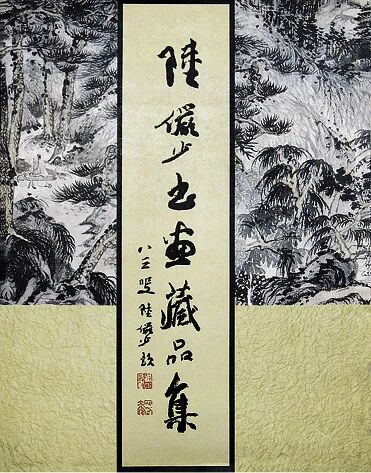 陸儼少书画藏品集
八三叟陸儼少題